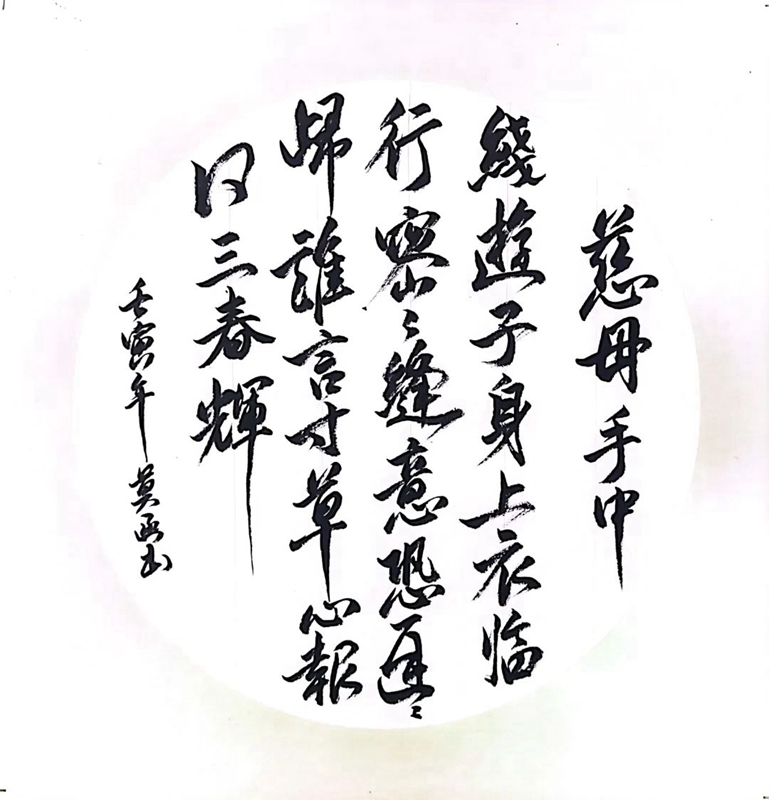 慈母手中
綫遊子身上衣臨
行密〻縫意恐遲〻
歸誰言寸草心報
得三春輝
壬寅年 莫 书